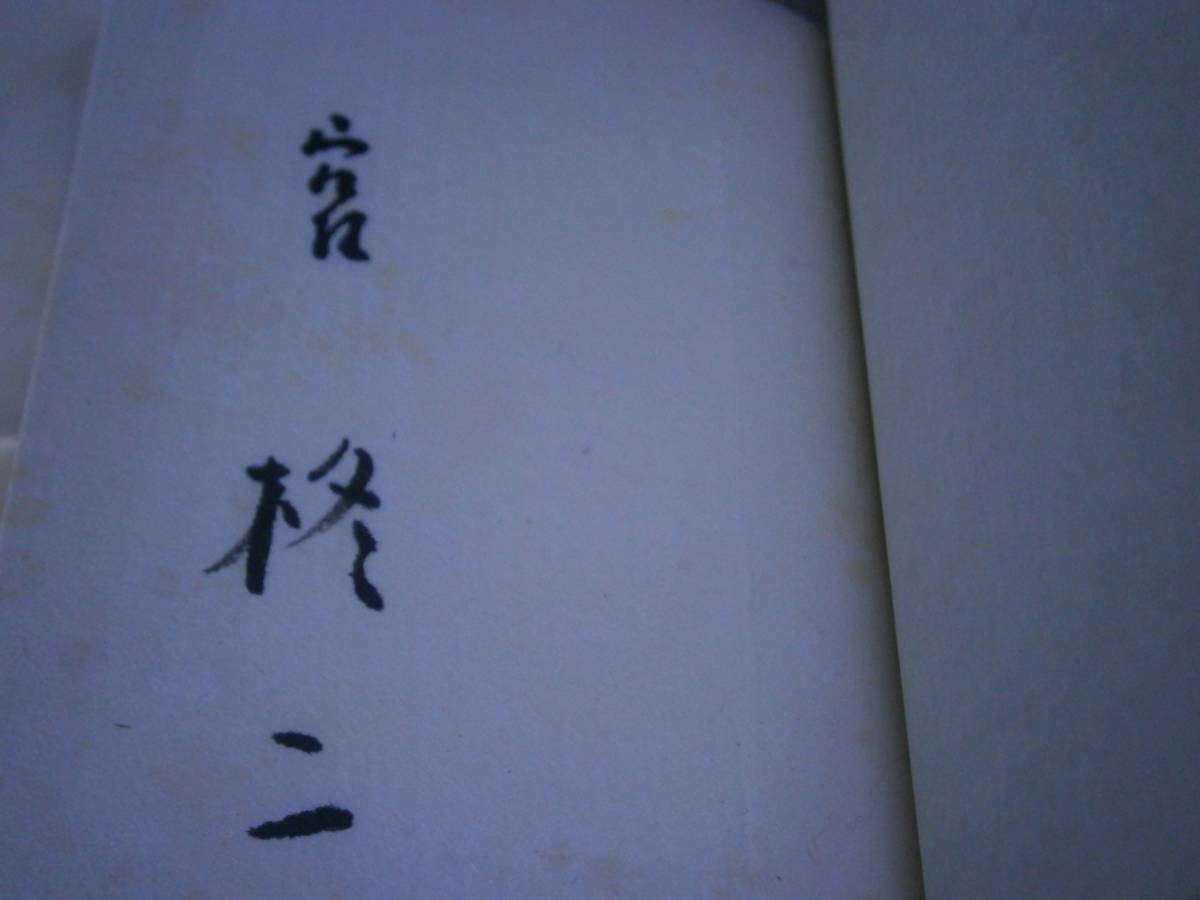 宮柊二